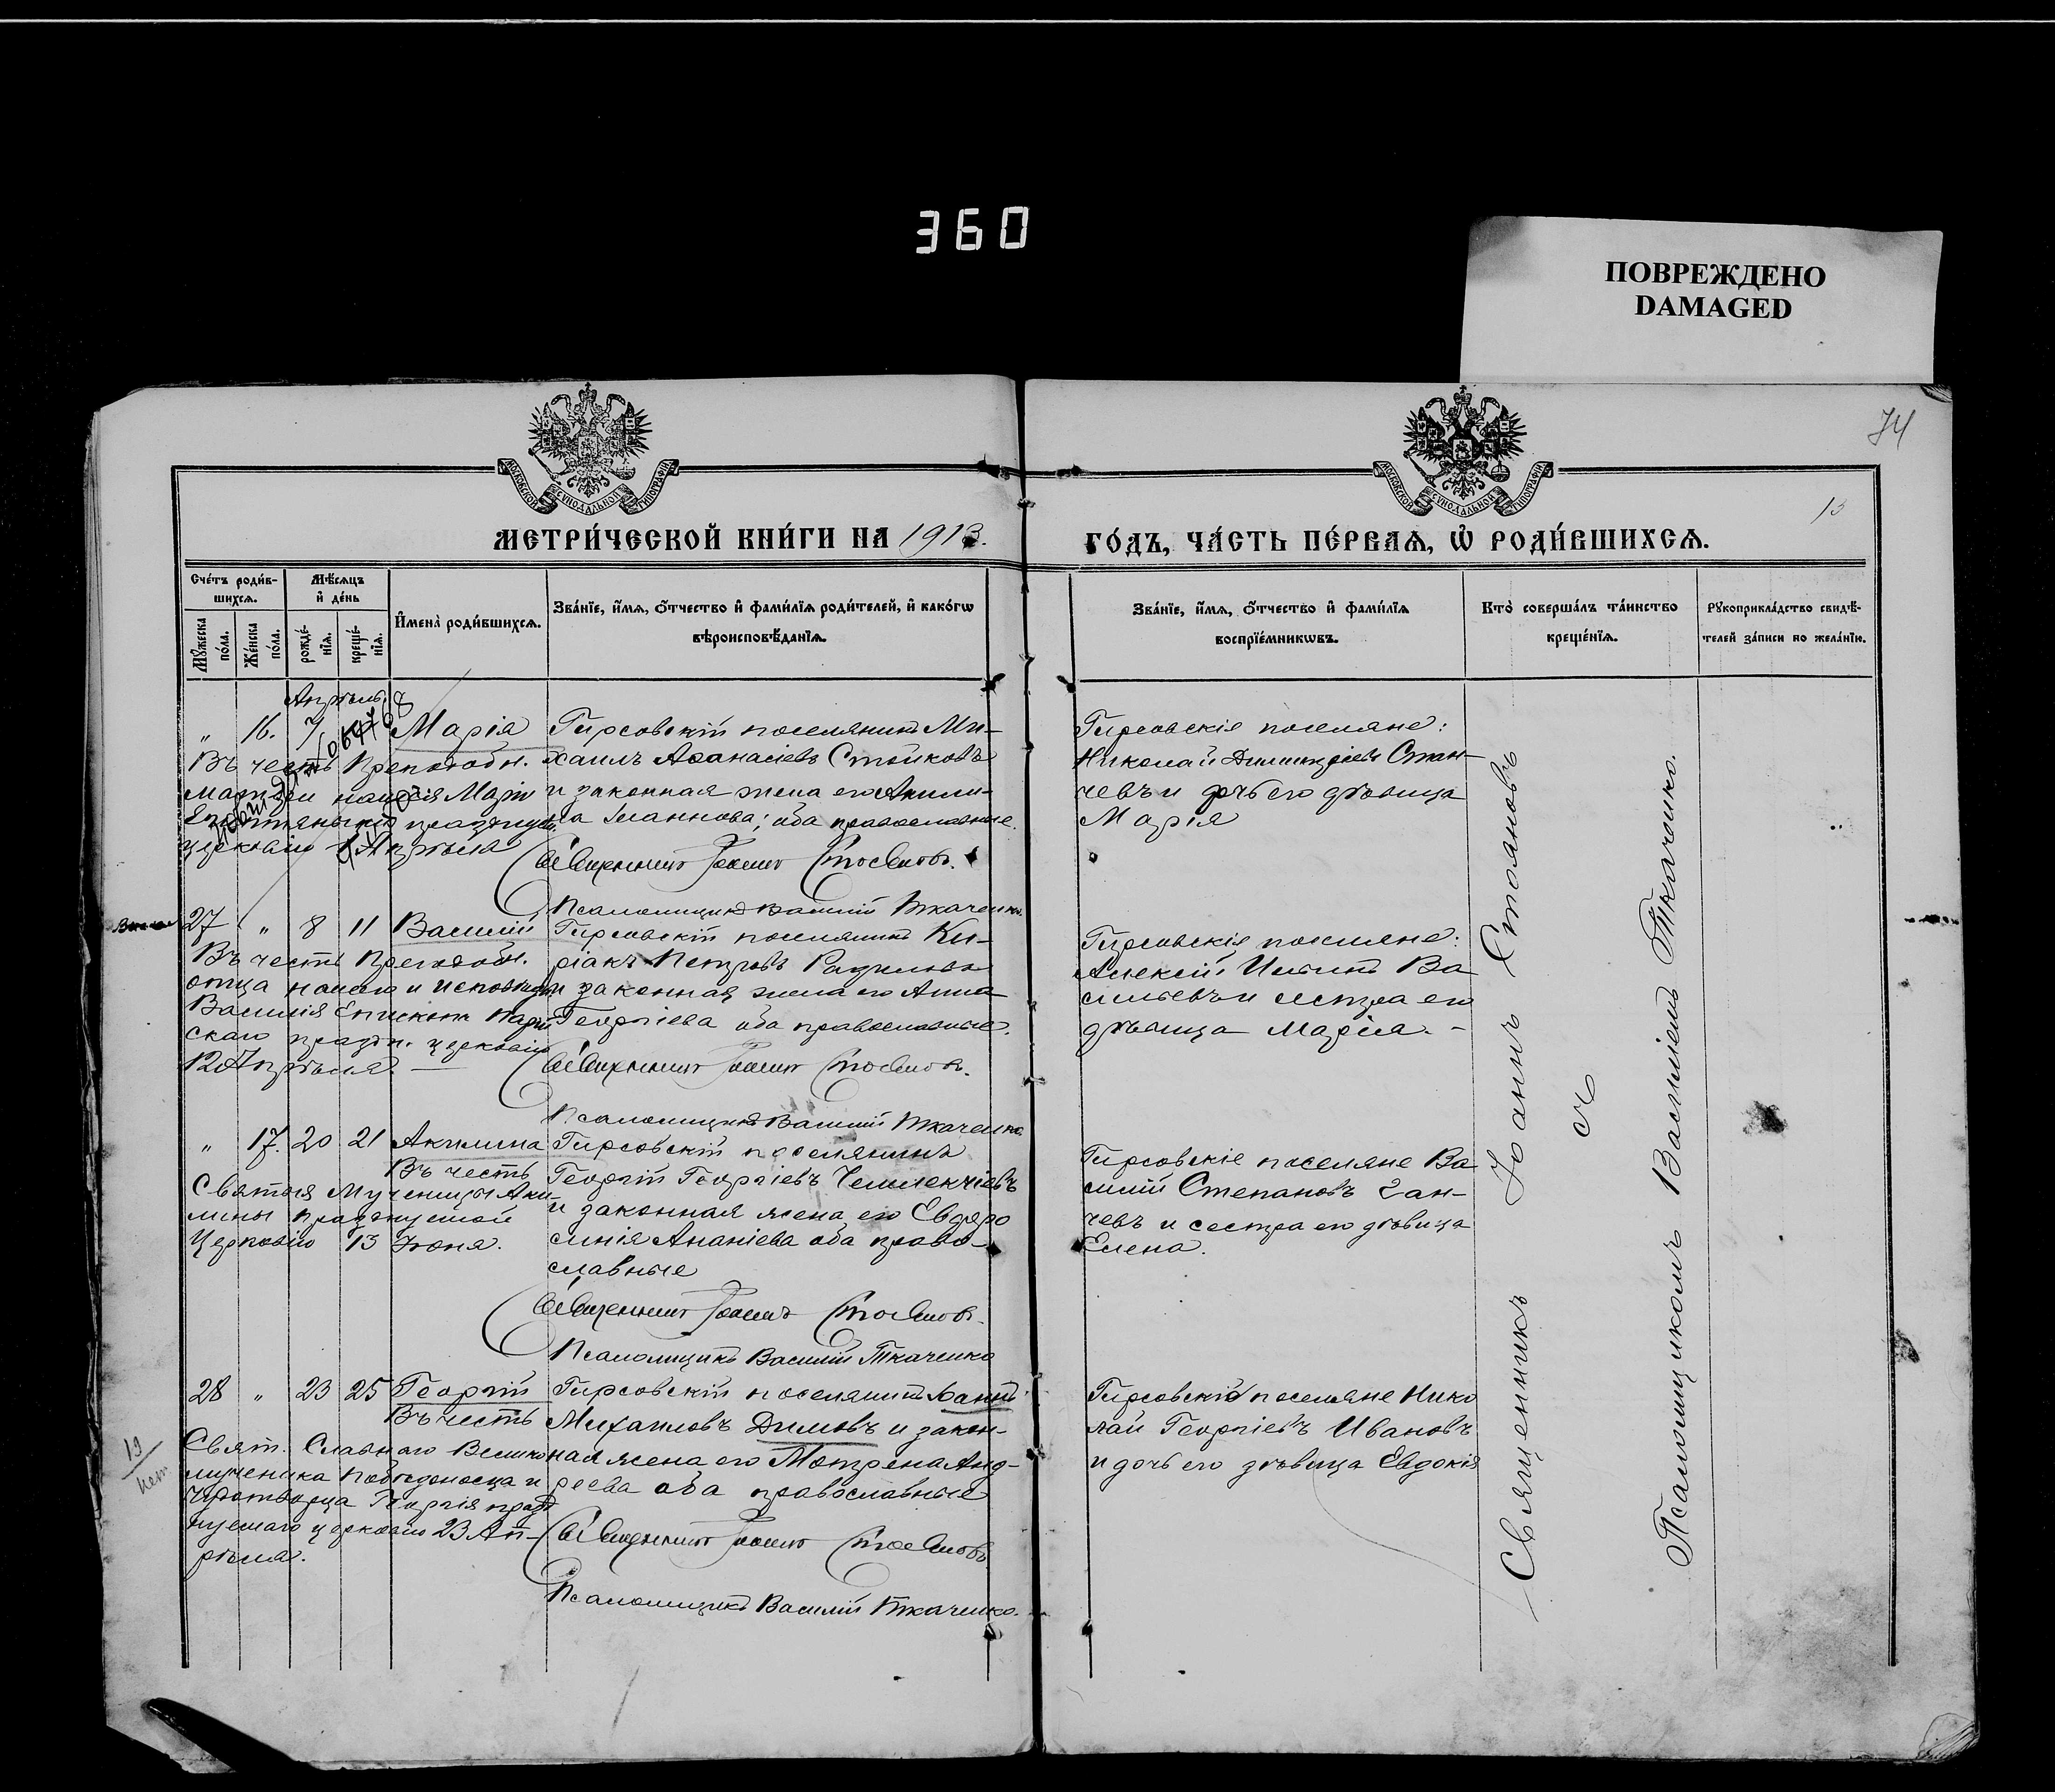 360
ПОВРЕЖДЕНО
DAMAGED
74
МОСКОВСКОЙ СѴНОДАЛЬНОЙ ТИПОГРАФІИ
МОСКОВСКОЙ СѴНОДАЛЬНОЙ ТИПОГРАФІИ
13
МЕТРИ́ЧЕСКОЙ КНИ́ГИ НА 1913.
ГО́ДЪ, ЧА́СТЬ ПЕ́РВАѦ, Ѡ҆ РОДИ́ВШИХСѦ.
Сче́тъ роди́в-
шихсѧ.
Мѣ́сѧцъ
и҆ де́нь
Мꙋ́жеска по́ла.
Же́нска по́ла.
рожде́-нїѧ.
креще́-нїѧ.
И҆мена̀ роди́вшихсѧ.
Зва́нїе, и҆́мѧ, ѻ҆́тчество и҆ фами́лїѧ роди́телей, и҆ како́гѡ
вѣроисповѣ́данїѧ.
Зва́нїе, и҆́мѧ, ѻ҆́тчество и҆ фами́лїѧ
воспрїе́мникѡвъ.
Кто̀ соверша́лъ та́инство
креще́нїѧ.
Рꙋкоприкла́дство свидѣ́-
телей за́писи по жела́нїю.
Апрѣль.
„ 16. 7 8 Марія
Въ честь Преподобн.
матери нашея Маріи
Египтяныни празднуем.
церковію 1 Апрѣля
Гирсовскій поселянинъ Ми-
хаилъ Аѳанасіевъ Стойковъ
и законная жена его Акили-
на Іоаннова; оба православные.
Священникъ Іоаннъ Стояновъ.
Псаломщикъ Василій Ткаченко
Гирсовскія поселяне:
Николай Димитріевъ Стан-
чевъ и дочь его дѣвица
Марія
27 „ 8 11 Василій
Въ честь Преподобн.
отца нашего и исповѣдн.
Василія Епископа Парій-
скаго праздн. церковію
12 Апрѣля.
Гирсовскій поселянинъ Ки-
ріакъ Петровъ Радиловъ
и законная жена его Анна
Георгіева оба православные.
Священникъ Іоаннъ Стояновъ.
Псаломщикъ Василій Ткаченко
Гирсовскія поселяне:
Алексій Ва
сильевъ и сестра его
дѣвица Марія. -
„ 17. 20 21 Акилина
Въ честь
Святыя Мученицы Аки-
лины празднуемой
Церковію 13 Іюня.
Гирсовскій поселянинъ
Георгій Георгіевъ Чешленкчіевъ
и законная жена его Евфро
синія Ананіева оба право-
славные
Священникъ Іоаннъ Стояновъ.
Псаломщикъ Василій Ткаченко
Гирсовскіе поселяне Ва
силій Степановъ Ган-
чевъ и сестра его дѣвица
Елена.
28 „ 23 25 Георгій
Въ честь
Свят. Славнаго Велико
мученика Побѣдоносца и
Чудотворца Георгія празд
нуемаго церковію 23 Ап-
рѣля.
19
нет
Гирсовскій поселянинъ Іоаннъ
Михаиловъ Димовъ и закон-
ная жена его Мотрена Анд-
реева оба православные
Священникъ Іоаннъ Стояновъ
Псаломщикъ Василій Ткаченко.
Гирсовскія поселяне Нико
лай Георгіевъ Ивановъ
и дочь его дѣвица Евдокія
Священникъ Іоаннъ Стояновъ
съ
Псаломщикомъ Василіемъ Ткаченко.